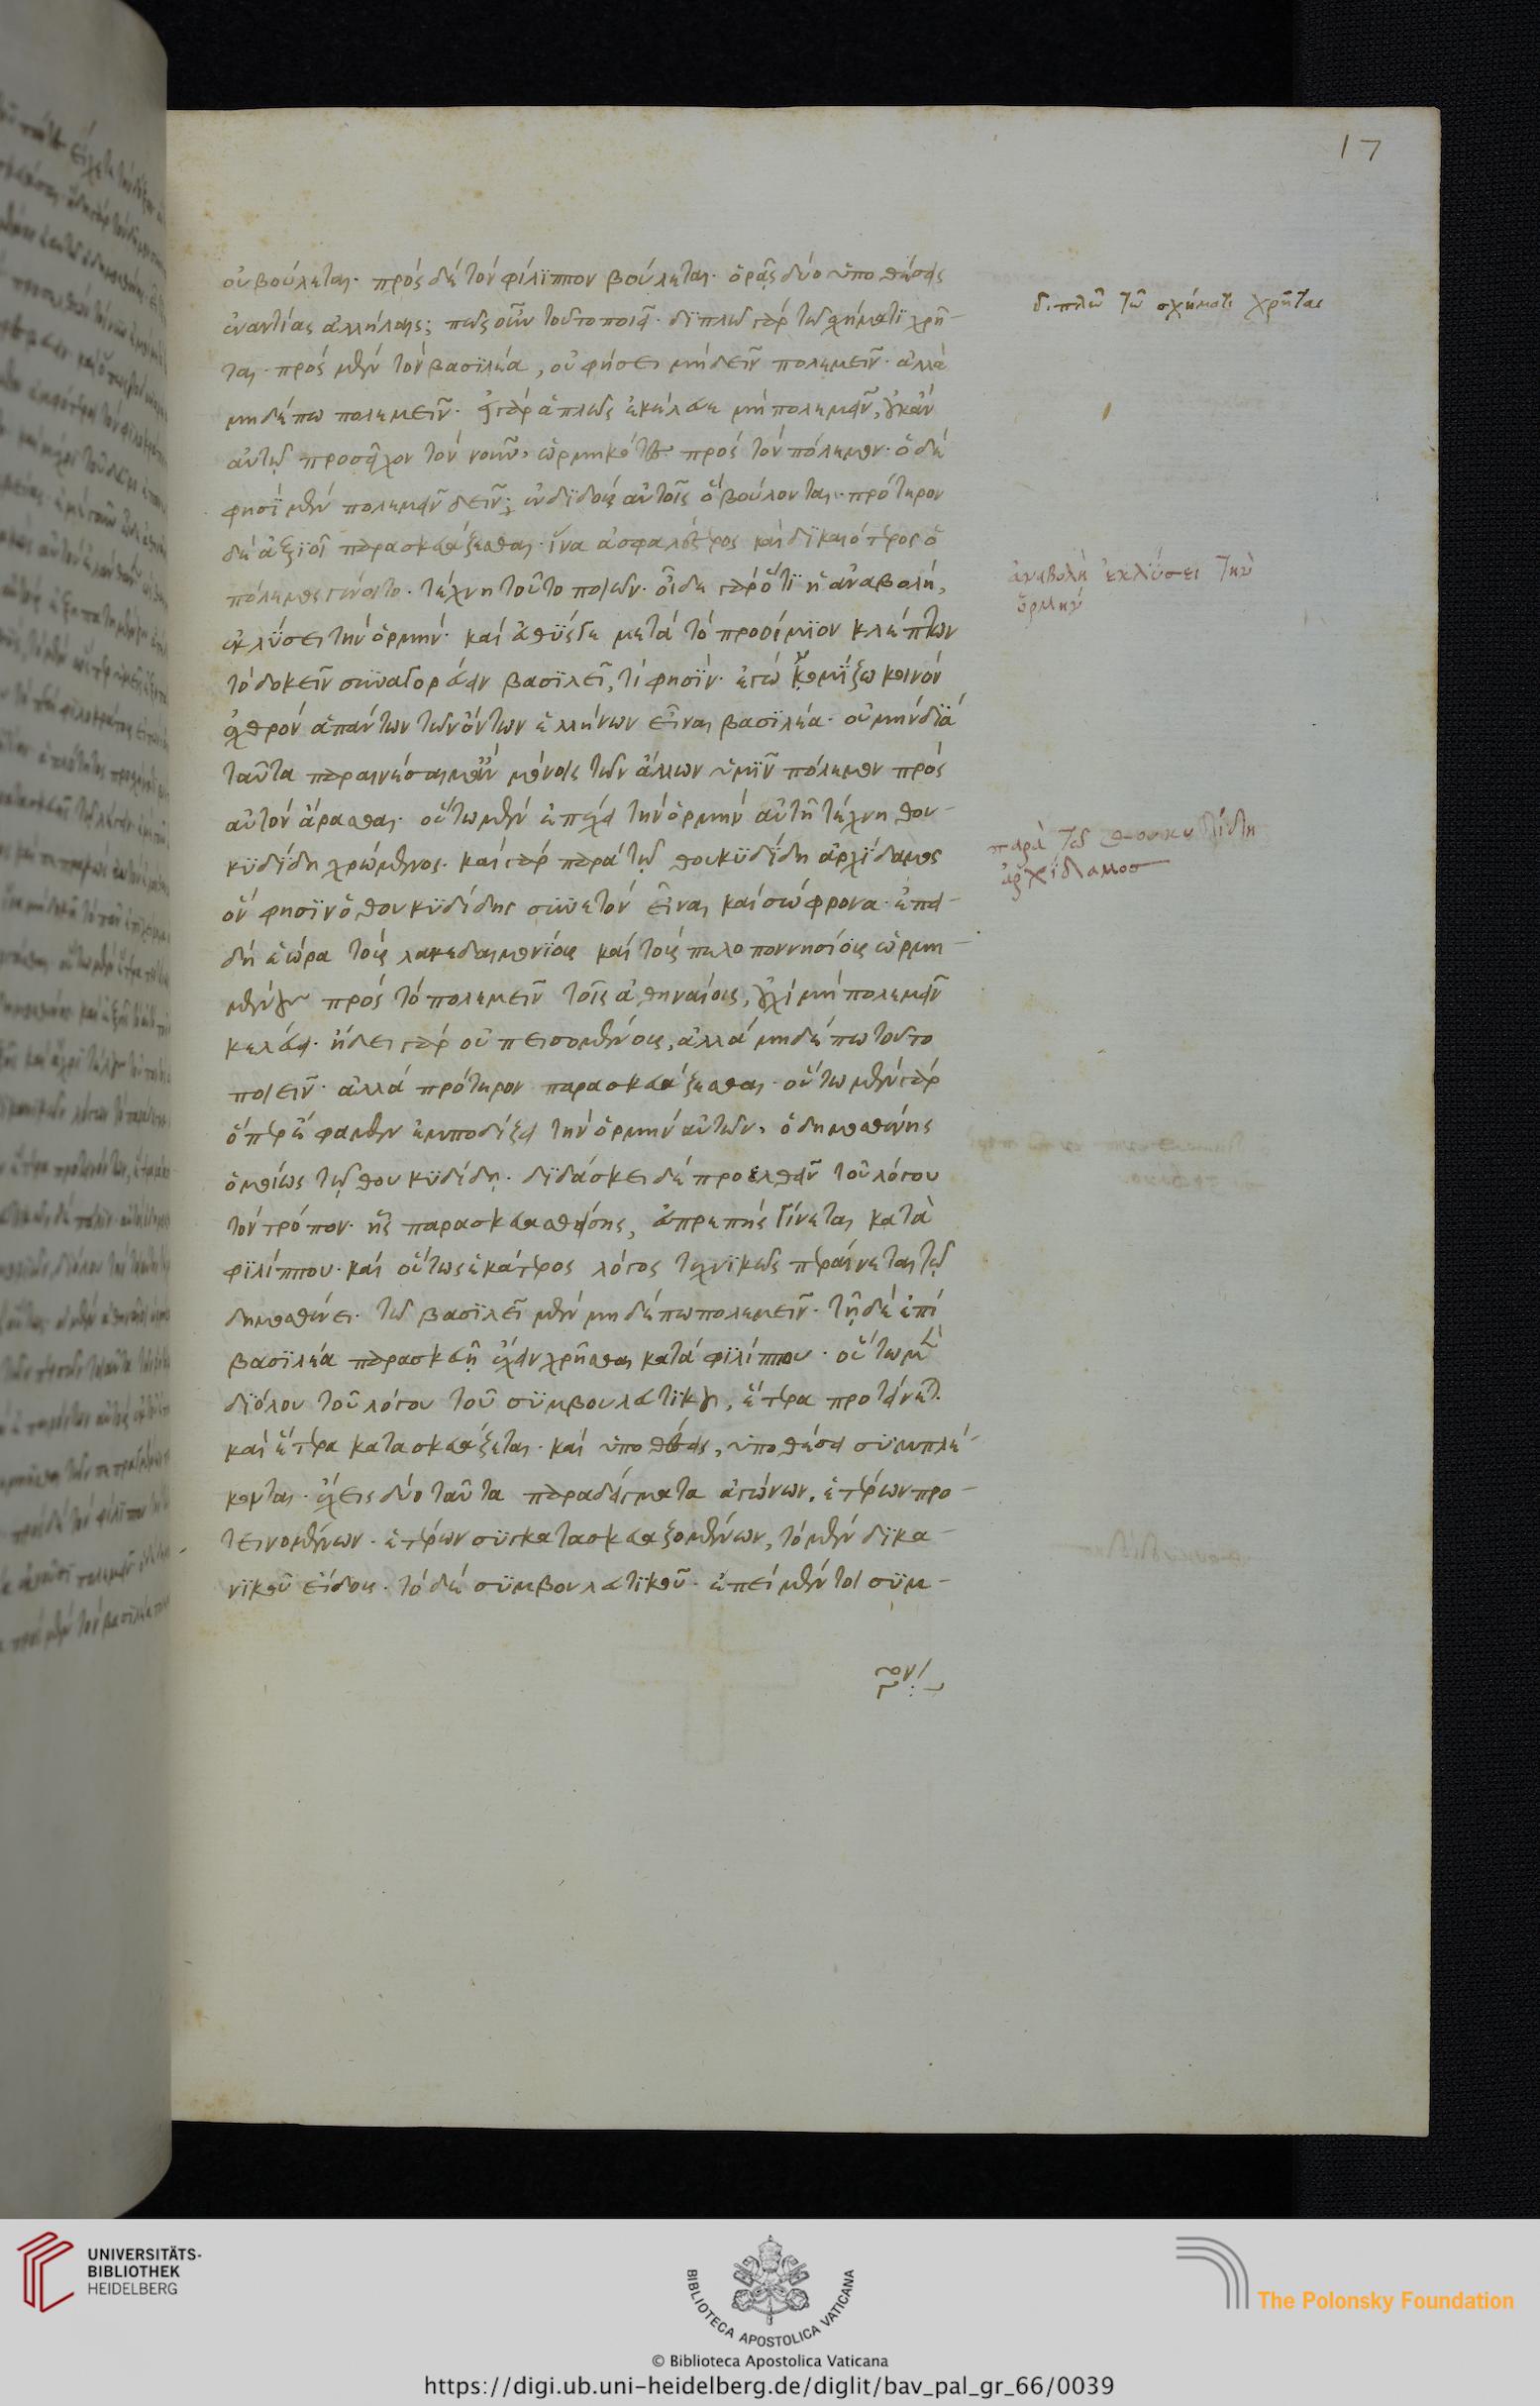 17
οὐ βούλεται· πρὸς δὲ τὸν φίλιππον βούλεται· ὁρᾷς δύο ὑποθέσεις
ἐναντίας ἀλλήλαις; πῶς οὖν τοῦτο ποιεῖ· διπλῶ γὰρ τῶ σχήματι χρῆ-
ται· πρὸς μὲν τὸν βασιλέα, οὐ φήσει μὴ δεῖν πολεμεῖν· ἀλλὰ
μηδέπω πολεμεῖν· εἰ γὰρ ἁπλῶς ἐκέλευε μὴ πολεμεῖν, οὐκ ἂν
αὐτῷ προσεῖχον τὸν νοῦν, ὡρμηκότες πρὸς τὸν πόλεμον· ὁ δὲ
φησὶ μὲν πολεμεῖν δεῖν· ἐνδιδοὺς αὐτοῖς ὃ βούλονται· πρότερον
δὲ ἀξιοῖ παρασκευάζεσθαι· ἵνα ἀσφαλέστερος καὶ δικαιότερος ὁ
πόλεμος γένοιτο· τέχνη τοῦτο ποιῶν· οἶδε γὰρ ὅτι ἡ ἀναβολὴ,
ἐκλύσει τὴν ὁρμήν· καὶ εὐθύς γε μετὰ τὸ προοίμιον κλέπτων
τὸ δοκεῖν συναγορεύειν βασιλεῖ, τί φησίν· ἐγὼ νομίζω κοινὸν
ἐχθρὸν ἁπάντων τῶν ὄντων ἑλλήνων εἶναι βασιλέα· οὐ μὴν διὰ
ταῦτα παραινέσαιμ' ἂν μόνοις τῶν ἄλλων ὑμῖν πόλεμον πρὸς
αὐτὸν ἄρασθαι· οὕτω μὲν ἐπέχει τὴν ὁρμὴν αὐτῆ τέχνη θου-
κυδίδη χρώμενος· καὶ γὰρ παρὰ τῷ θουκυδίδη ἀρχίδαμος
ὅν φησιν ὁ θουκυδίδης συνετὸν εἶναι καὶ σώφρονα· ἐπει-
δὴ ἑώρα τοὺς λακεδαιμονίους καὶ τοὺς πελοποννησίους ὡρμη-
μένους πρὸς τὸ πολεμεῖν τοῖς ἀθηναίοις, οὐχὶ μὴ πολεμεῖν
κελεύει· ἤδει γὰρ οὐ πεισομένους, ἀλλὰ μηδέπω τοῦτο
ποιεῖν· ἀλλὰ πρότερον παρασκευάζεσθαι· οὕτω μὲν γὰρ
ὅπερ ἔφαμεν ἐμποδίζει τὴν ὁρμὴν αὐτῶν, ὁ δημοσθένης
ὁμοίως τῷ θουκυδίδῃ· διδάσκει δὲ προελθεῖν τοῦ λόγου
τὸν τρόπον· ἧς παρασκευασθείσης, εὐπρεπὴς γίνεται κατὰ
φιλίππου· καὶ οὕτως ἑκάτερος λόγος τεχνικῶς περαίνεται τῷ
δημοσθένει· τῶ βασιλεῖ μὲν μηδέπω πολεμεῖν· τῇ δὲ ἐπὶ
βασιλέα παρασκευῇ ἔχειν χρῆσθαι κατὰ φιλίππου· οὕτω μὲν
διόλου τοῦ λόγου τοῦ συμβουλευτικοῦ, ἕτερα προτείνεται
καὶ ἕτερα κατασκευάζεται· καὶ ὑποθέσεις, ὑποθέσει συμπλέ-
κονται· ἔχεις δύο ταῦτα παραδείγματα ἀγώνων, ἑτέρων προ-
τεινομένων· ἑτέρων συγκατασκευαζομένων, τὸ μὲν δικα-
νικοῦ εἴδους· τὸ δὲ συμβουλευτικοῦ· ἐπεὶ μέντοι συμ-
διπλῶ τῶ σχήματι χρῆται
ἀναβολὴ ἐκλύσει τὴν
ὁρμήν
παρὰ τῶ θουκυδίδη
ἀρχίδαμοσ
UNIVERSITÄTS-
BIBLIOTHEK
HEIDELBERG
BIBLIOTECA APOSTOLICA VATICANA
The Polonsky Foundation
© Biblioteca Apostolica Vaticana
https://digi.ub.uni-heidelberg.de/diglit/bav_pal_gr_66/0039